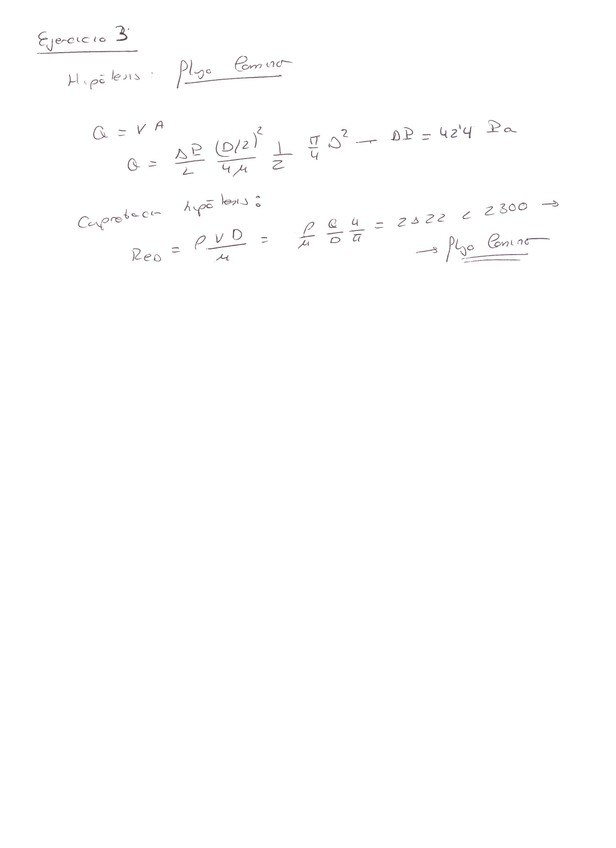 Ejercicio 3
Hipótesis: Flujo laminar
Q = V A
Q = ΔP/L (D/2)²/4μ 1/2 π/4 D² → ΔP = 42'4 Pa
Comprobación hipótesis:
Re_D = ρ V D/μ = ρ/μ Q/D 4/π = 2122 < 2300 →
→ Flujo laminar